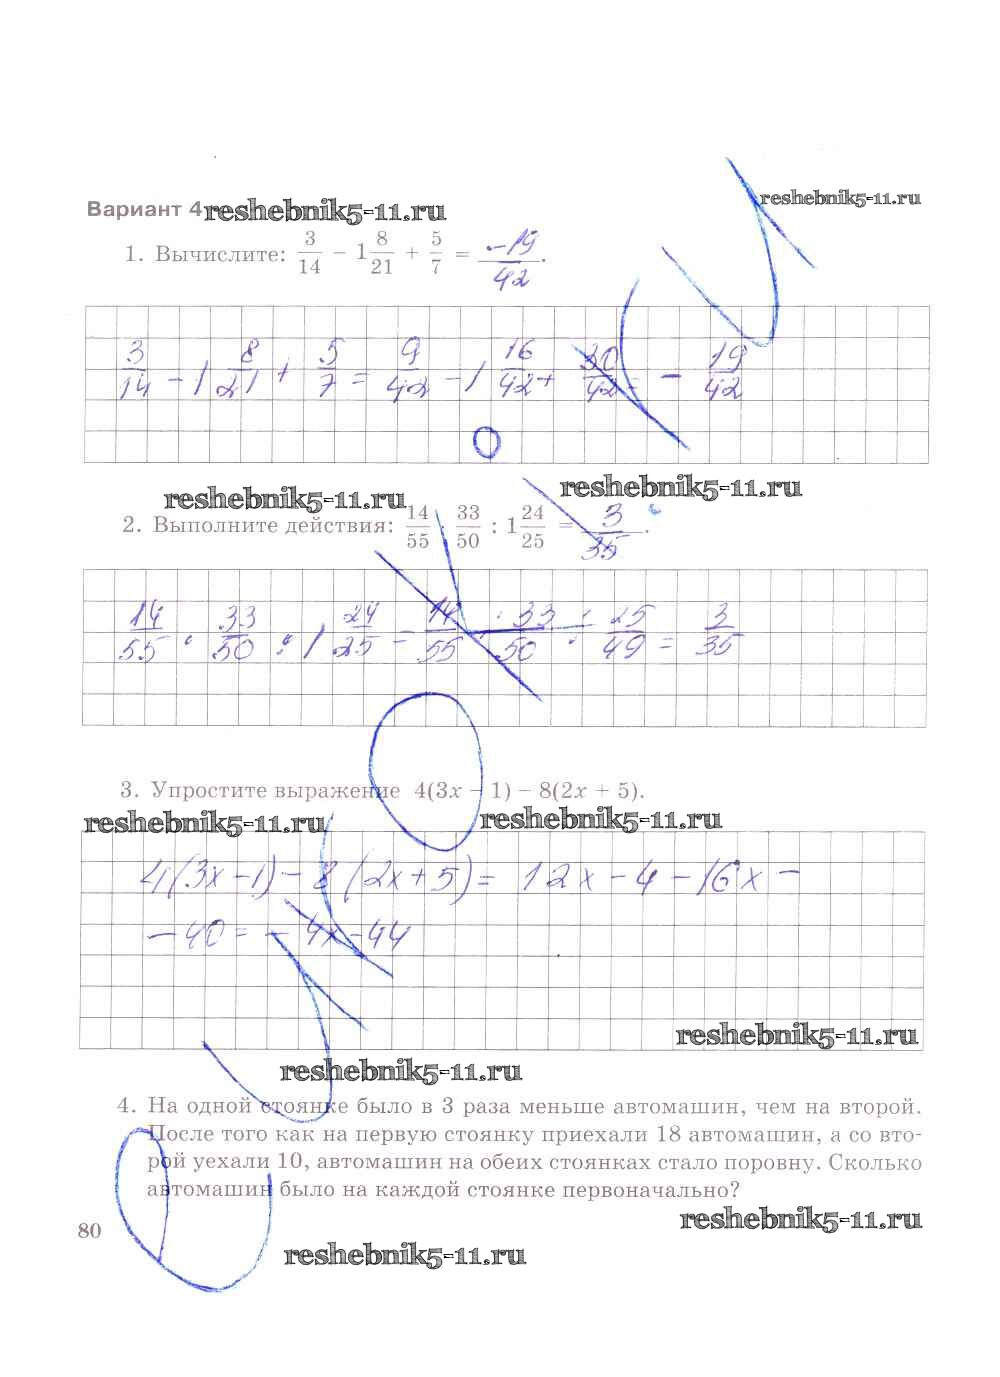 Вариант 4 reshebnik5-11.ru reshebnik5-11.ru
1. Вычислите: 3/14 − 1 8/21 + 5/7 = −19/42.
3/14 − 1 8/21 + 5/7 = 9/42 − 1 16/42 + 30/42 = − 19/42
reshebnik5-11.ru reshebnik5-11.ru
2. Выполните действия: 14/55 · 33/50 : 1 24/25 = 3/35.
14/55 · 33/50 : 1 24/25 = 14/55 · 33/50 : 25/49 = 3/35
3. Упростите выражение 4(3x − 1) − 8(2x + 5).
reshebnik5-11.ru reshebnik5-11.ru
4(3x−1)−8(2x+5)= 12x−4−16x−
−40=−4x−44
reshebnik5-11.ru
reshebnik5-11.ru
4. На одной стоянке было в 3 раза меньше автомашин, чем на второй.
После того как на первую стоянку приехали 18 автомашин, а со вто-
рой уехали 10, автомашин на обеих стоянках стало поровну. Сколько
автомашин было на каждой стоянке первоначально?
reshebnik5-11.ru
80
reshebnik5-11.ru